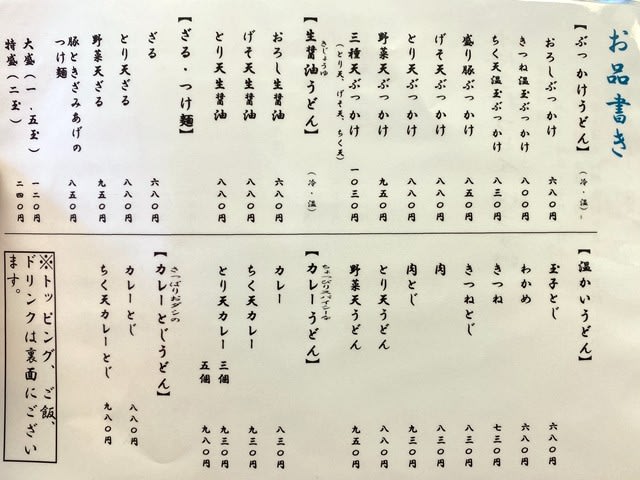 お品書き
【ぶっかけうどん】（冷・温）
おろしぶっかけ 六八〇円
きつね温玉ぶっかけ 八〇〇円
ちく天温玉ぶっかけ 八三〇円
盛り豚ぶっかけ 八五〇円
げそ天ぶっかけ 八八〇円
とり天ぶっかけ 八八〇円
野菜天ぶっかけ 九五〇円
三種天ぶっかけ 一〇三〇円
（とり天、げそ天、ちく天）
きじょうゆ
【生醤油うどん】（冷・温）
おろし生醤油 六八〇円
げそ天生醤油 八八〇円
とり天生醤油 八八〇円
【ざる・つけ麺】
ざる 六八〇円
とり天ざる 八八〇円
野菜天ざる 九五〇円
豚ときざみあげの
つけ麺 八五〇円
大盛（一．五玉） 一二〇円
特盛（二玉） 二四〇円
【温かいうどん】
玉子とじ 六八〇円
わかめ 六八〇円
きつね 七三〇円
きつねとじ 八三〇円
肉 八八〇円
肉とじ 九三〇円
とり天うどん 八八〇円
野菜天うどん 九五〇円
ちょっぴりスパイシーな
【カレーうどん】
カレー 八三〇円
ちく天カレー 九三〇円
とり天カレー 三個 九三〇円
五個 九八〇円
さっぱりおダシの
【カレーとじうどん】
カレーとじ 八八〇円
ちく天カレーとじ 九八〇円
※トッピング、ご飯、
ドリンクは裏面にござい
ます。